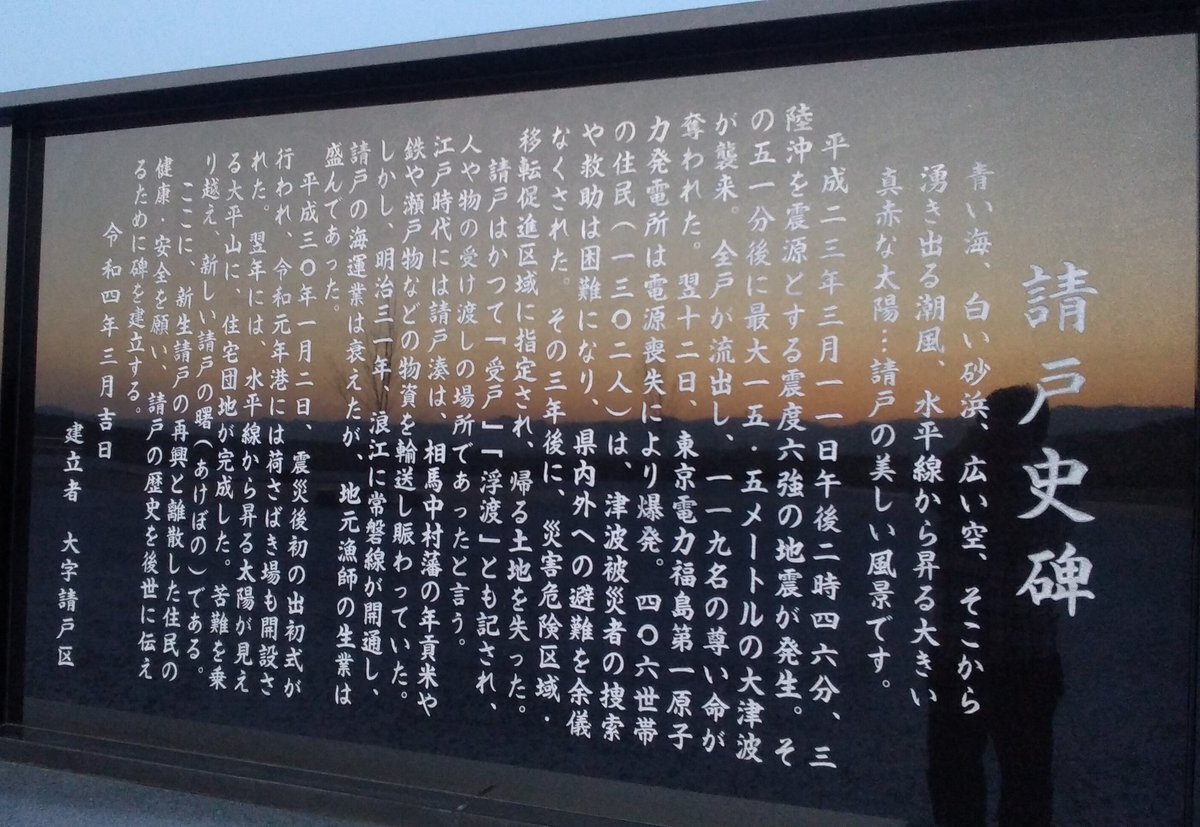 請戸史碑
青い海、白い砂浜、広い空、そこから
湧き出る潮風、水平線から昇る大きい
真赤な太陽…請戸の美しい風景です。
平成二三年三月一一日午後二時四六分、三
陸沖を震源とする震度六強の地震が発生。そ
の五一分後に最大一五・五メートルの大津波
が襲来。全戸が流出し、一一九名の尊い命が
奪われた。翌十二日、東京電力福島第一原子
力発電所は電源喪失により爆発。四〇六世帯
の住民(一三〇二人)は、津波被災者の捜索
や救助は困難になり、県内外への避難を余儀
なくされた。その三年後に、災害危険区域・
移転促進区域に指定され、帰る土地を失った。
請戸はかつて「受戸」「浮渡」とも記され、
人や物の受け渡しの場所であったと言う。
江戸時代には請戸湊は、相馬中村藩の年貢米や
鉄や瀬戸物などの物資を輸送し賑わっていた。
しかし、明治三一年、浪江に常磐線が開通し、
請戸の海運業は衰えたが、地元漁師の生業は
盛んであった。
平成三〇年一月二日、震災後初の出初式が
行われ、令和元年港には荷さばき場も開設さ
れた。翌年には、水平線から昇る太陽が見え
る大平山に、住宅団地が完成した。苦難を乗
り越え、新しい請戸の曙(あけぼの)である。
ここに、新生請戸の再興と離散した住民の
健康・安全を願い、請戸の歴史を後世に伝え
るために碑を建立する。
令和四年三月吉日
建立者 大字請戸区